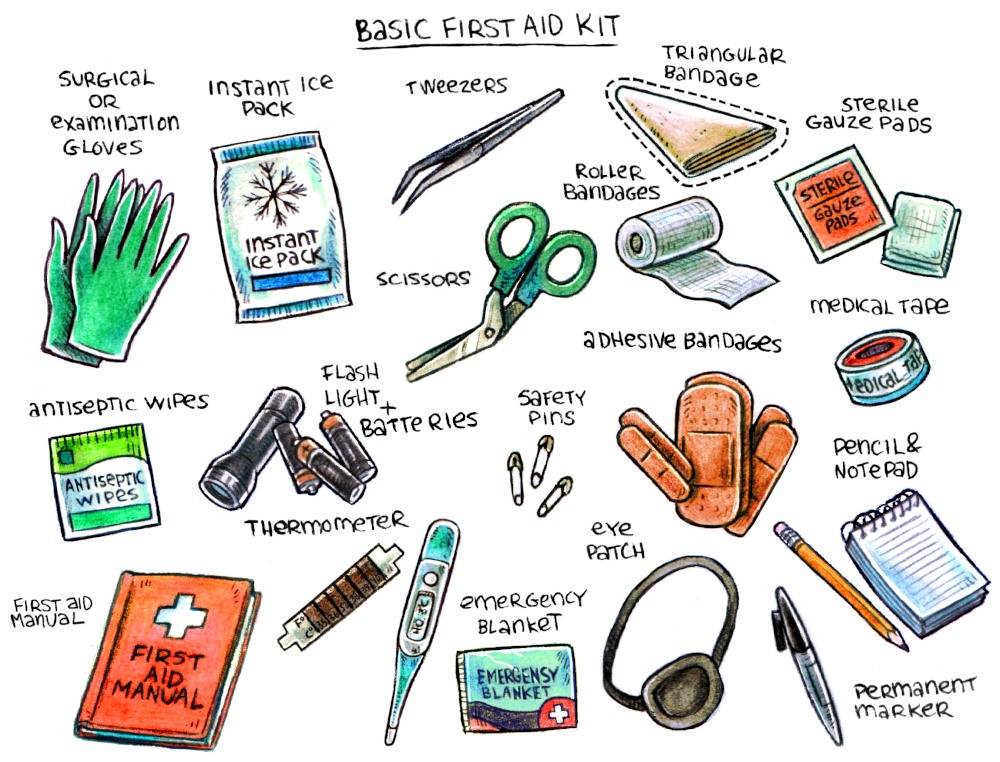 BASIC FIRST AID KIT
SURGICAL
OR
examination
GLOVES
INSTANT ICE
PACK
TWEEZERS
TRIANGULAR
BANDAGE
STERILE
GAUZE PADS
ROLLER
BANDAGES
STERILE
GAUZE
PADS
INSTANT
ICE PACK
SCISSORS
MEDICAL TAPE
MEDICAL TAP
ADHESIVE BANDAGES
FLASH
LIGHT +
BATTERIES
ANTISEPTIC WIPES
ANTISEPTIC
WIPES
SAFETY
PINS
PENCIL &
NOTEPAD
THERMOMETER
EYE
PATCH
FIRST AID
MANUAL
FIRST
AID
MANUAL
F°
C°
EMERGENCY
BLANKET
EMERGENSY
BLANKET
PERMANENT
MARKER